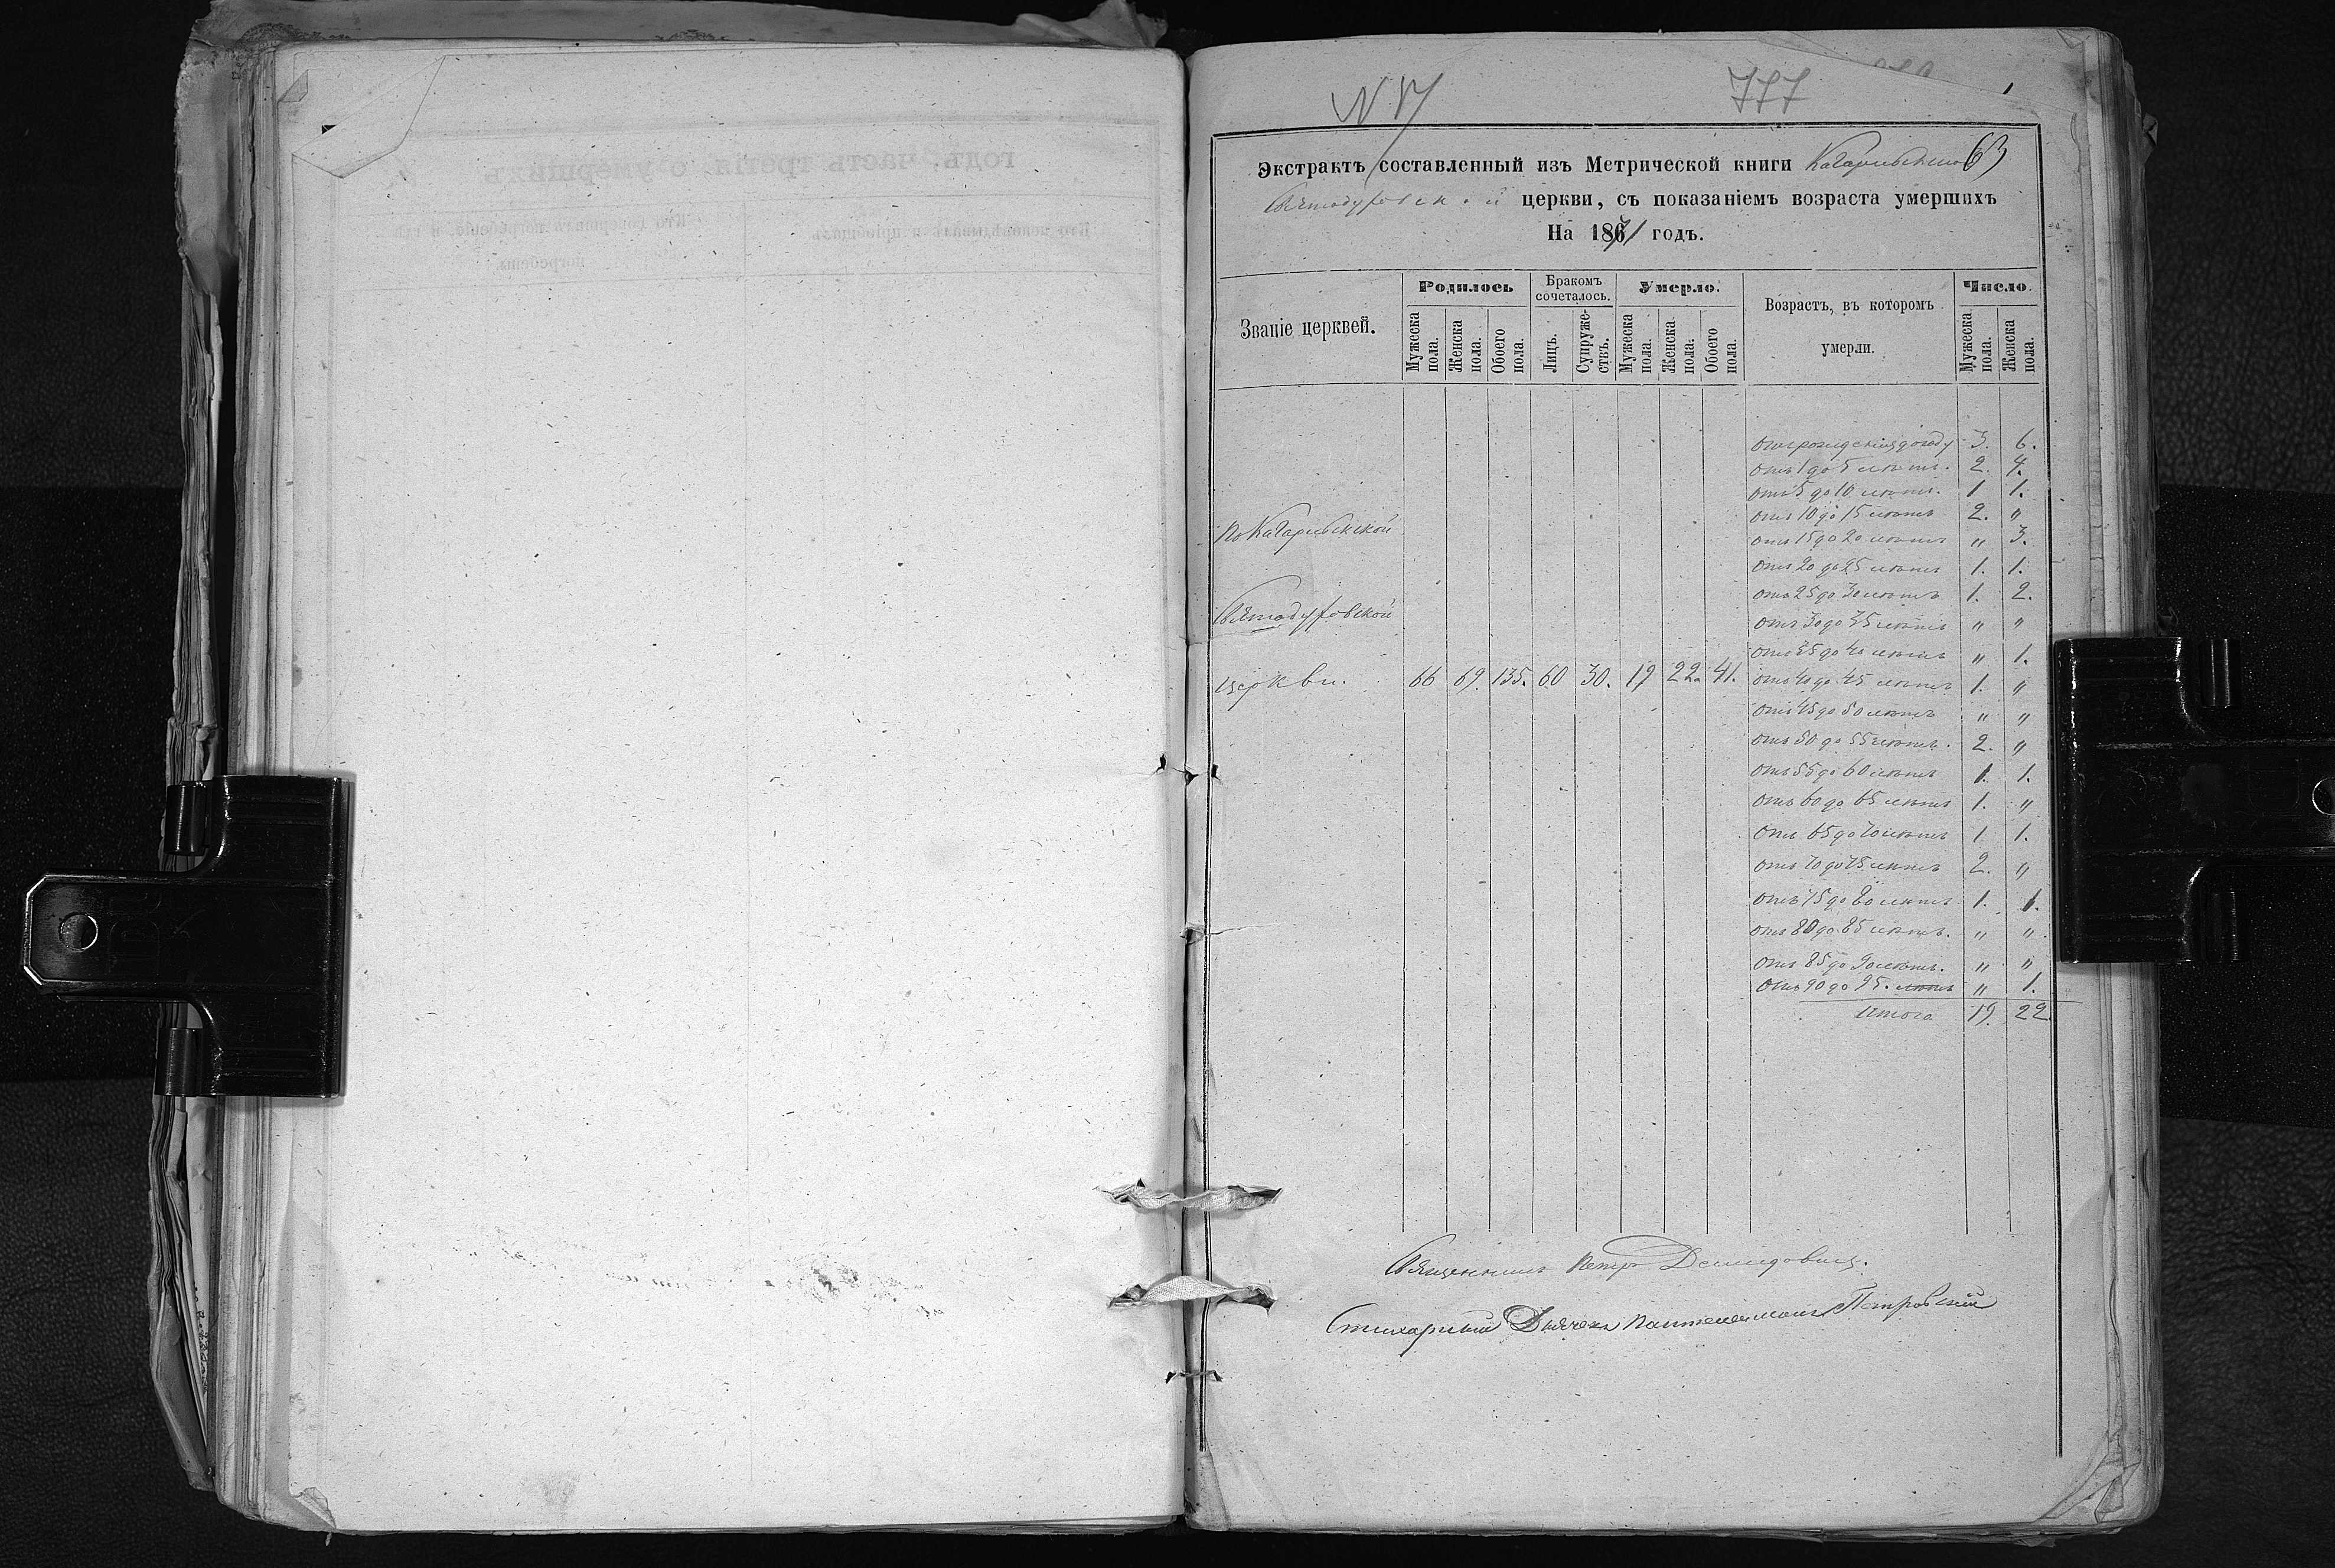 N 17
777
63
Экстрактъ составленный изъ Метрической книги Кагарлыкской
Святодуховской церкви, съ показаніемъ возраста умершихъ
На 1871 годъ.
Званіе церквей.
Родилось
Бракомъ сочеталось.
Умерло.
Возрастъ, въ которомъ умерли.
Число.
Мужеска пола.
Женска пола.
Обоего пола.
Лицъ.
Супружествъ.
Мужеска пола.
Женска пола.
Обоего пола.
Мужеска пола.
Женска пола.
отъ рожденія до году 3. 6.
отъ 1 до 5 лѣтъ. 2. 4.
отъ 5 до 10 лѣтъ. 1 1.
отъ 10 до 15 лѣтъ 2. "
По Кагарлыкской
отъ 15 до 20 лѣтъ " 3.
отъ 20 до 25 лѣтъ 1. 1.
отъ 25 до 30 лѣтъ 1. 2.
Святодуховской
отъ 30 до 35 лѣтъ " "
отъ 35 до 40 лѣтъ " 1.
церкви. 66 69. 135. 60 30. 19 22. 41. отъ 40 до 45 лѣтъ 1. "
отъ 45 до 50 лѣтъ " "
отъ 50 до 55 лѣтъ. 2. "
отъ 55 до 60 лѣтъ 1. 1.
отъ 60 до 65 лѣтъ 1. "
отъ 65 до 70 лѣтъ 1 1.
отъ 70 до 75 лѣтъ 2. "
отъ 75 до 80 лѣтъ 1. 1.
отъ 80 до 85 лѣтъ. " "
отъ 85 до 90 лѣтъ. " "
отъ 90 до 95. лѣтъ " 1.
Итого 19. 22.
Священникъ Петръ Демидовичъ.
Стихарный Дьячекъ Пантелеимонъ Петровскій